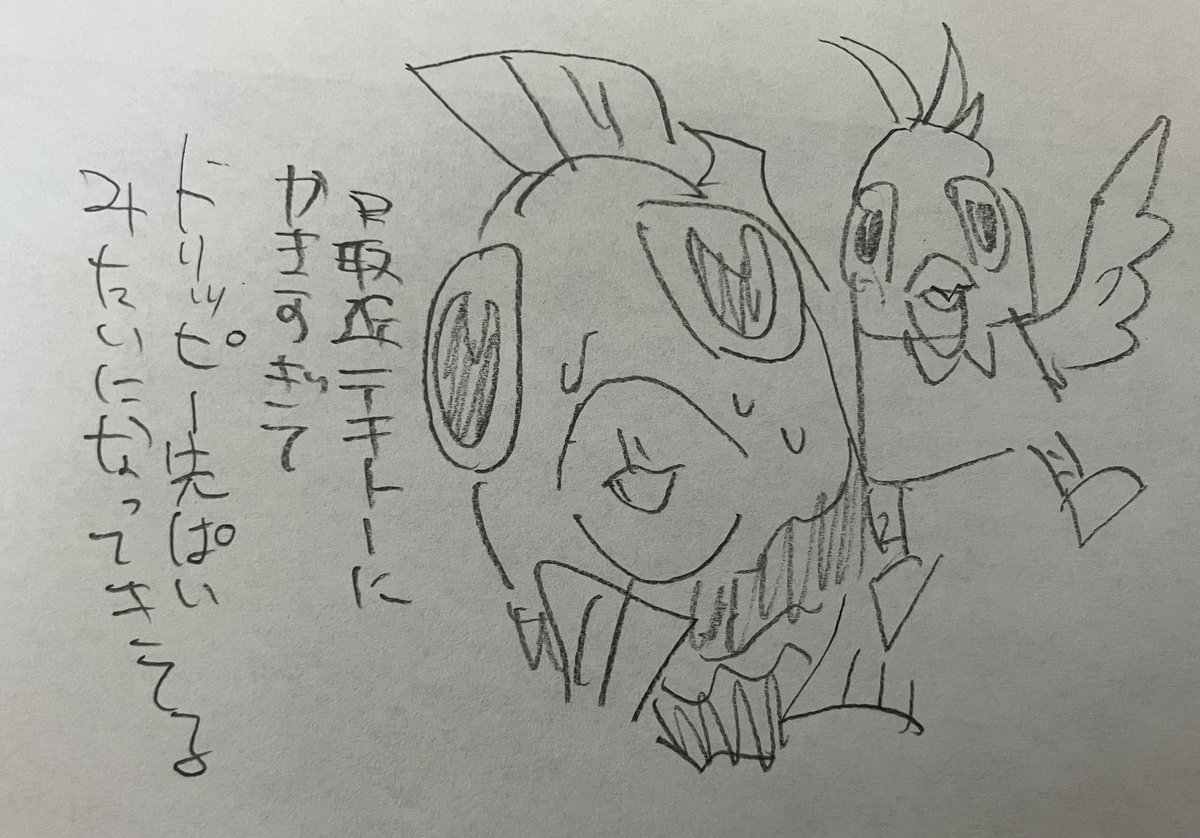 最近テキトーに
かきすぎて
ドリッピー先ぱい
みたいになってきてる